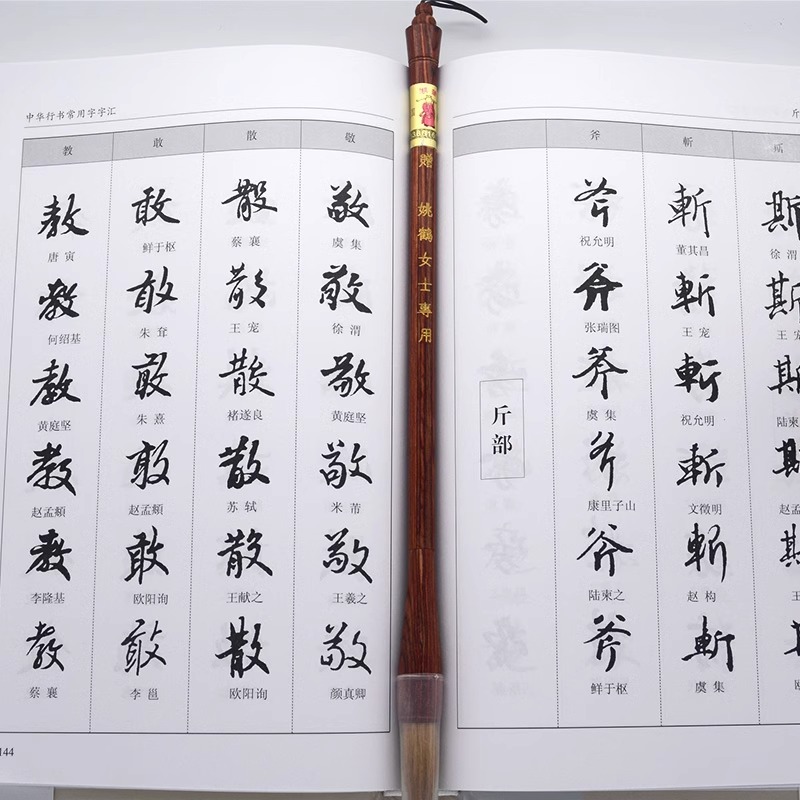 中华行书常用字字汇
教 敢 散 敬
教 敢 散 敬
唐寅 鲜于枢 蔡襄 虞集
教 敢 散 敬
何绍基 朱耷 王宠 徐渭
教 敢 散 敬
黄庭坚 朱熹 褚遂良 黄庭坚
教 敢 散 敬
赵孟頫 赵孟頫 苏轼 米芾
教 敢 散 敬
李隆基 欧阳询 王献之 王羲之
教 敢 散 敬
蔡襄 李邕 欧阳询 颜真卿
144
贈 姚鶴女士專用
斤部
斧 斬 斯
斧 斬 斯
祝允明 董其昌 徐渭
斧 斬 斯
张瑞图 王宠
斧 斬 斯
虞集 祝允明 陆柬之
斧 斬 斯
康里子山 文徵明
斧 斬 斯
陆柬之 赵构
斧 斬
鲜于枢 虞集